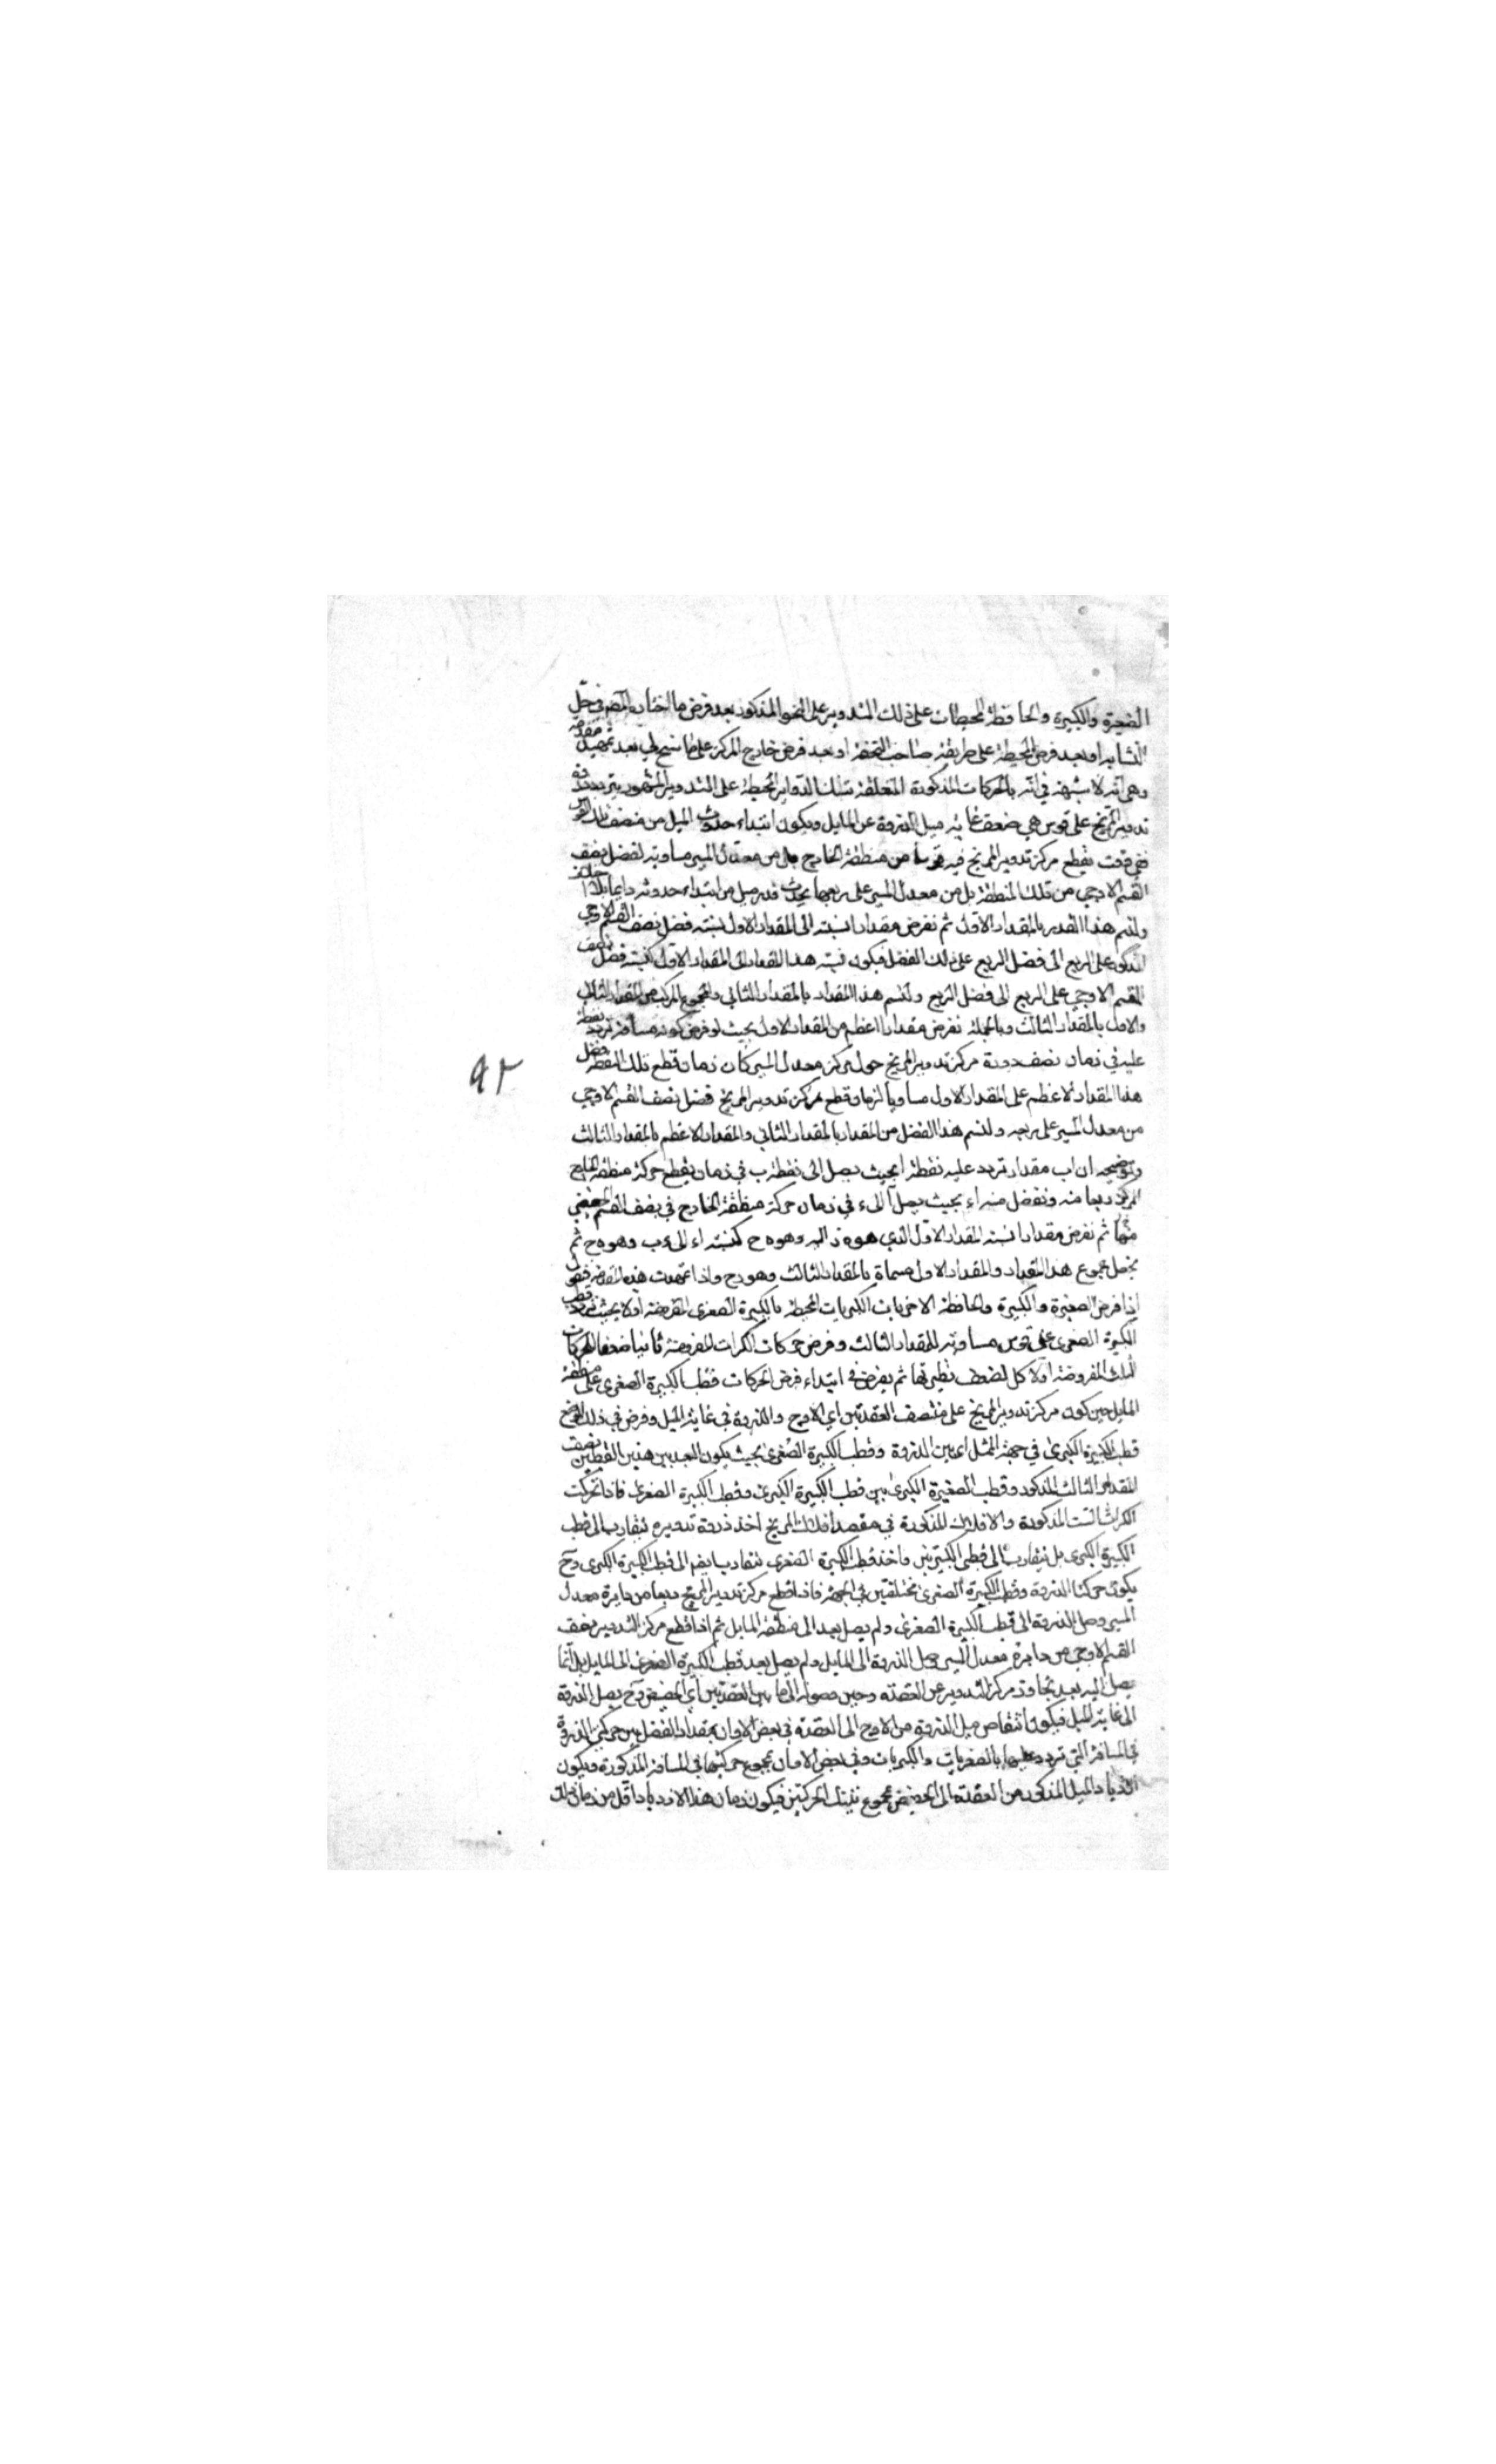 الصغيرة والكبيرة والحافظة المحيطات على ذلك التدوير على النحو المذكور بعد فرض ما اختاره المصـ في حل
التشابه او بعد فرض المحيطة على طريقة صاحب التحفة او بعد فرض خارج المركز على ما سنح لي بعد تمهيد مقدمة
وهي انه لا شبهة في انه بالحركات المذكورة المتعلقة بتلك الدواير المحيطة على التدوير المشهور يتردد ذروة
تدوير المريخ على قوس هي ضعف غاية ميل الذروة عن المايل ويكون ابتداء حدوث الميل من منصف تلك القوس
ففي وقت يقطع مركز تدوير المريخ فيه قوسا من منطقة الخارج بل من معدل المسير مساوية لفضل نصف
القسم الاوجي من تلك المنطقة بل من معدل المسير على ربعها يحدث قدر ميل من ابتداء حدوثه دايما بذلك
ولنسم هذا القدر بالمقدار الاول ثم نفرض مقدارا نسبته الى المقدار الاول نسبة فضل نصف القسم الاوجي
المذكور على الربع الى فضل الربع على ذلك الفضل فيكون نسبة هذا المقدار الى المقدار الاول كنسبة فضل نصف
القسم الاوجي على الربع الى فضل الربع ولنسم هذا المقدار بالمقدار الثاني والمجموع المركب من المقدار الثاني
والاول بالمقدار الثالث وبالجملة نفرض مقدارا اعظم من المقدار الاول بحيث لو فرض كونه مسافة تردد نقطة
عليه في زمان نصف دورة مركز تدوير المريخ حول مركز معدل المسير كان زمان قطع تلك النقطة فضل
هذا المقدار الاعظم على المقدار الاول مساويا لزمان قطع مركز تدوير المريخ فضل نصف القسم الاوجي
من معدل المسير على ربعه ولنسم هذا الفضل من المقدار بالمقدار الثاني والمقدار الاعظم بالمقدار الثالث
وتوضيحه ان اب مقدار تردد عليه نقطة ا بحيث يصل الى نقطة ب في زمان يقطع حركة منطقة الخارج
المركز ربعا منه ونفصل منه اء بحيث يصل آ الى ء في زمان حركة منطقة الخارج في نصف القسم الحضيضي
منها ثم نفرض مقدارا نسبة المقدار الاول الذي هو ه ز اليه وهو ه ح كنسبة اء الى ءب وهو ه ح ثم
نجعل مجموع هذا المقدار والمقدار الاول مسماة بالمقدار الثالث وهو زح واذا تمهدت هذه المقدمة فنقول
اذا فرض الصغيرة والكبيرة والحافظة الاخريات الكبريات المحيطة بالكبيرة الصغرى المفروضة اولا بحيث تردد قطب
الكبيرة الصغرى على قوس مساوية للمقدار الثالث وفرض حركات الكرات المفروضة ثانيا ضعف الحركات
تلك المفروضة اولا كل لضعف نظيرتها ثم يفرض في ابتداء فرض الحركات قطب الكبيرة الصغرى على منطقة
المايل حين كون مركز تدوير المريخ على منتصف العقدتين اي الاوج والذروة في غاية الميل وفرض في ذلك الوضع
قطب الكبيرة الكبرى في جهة الممثل اي بين الذروة وقطب الكبيرة الصغرى بحيث يكون البعد بين هذين القطبين نصف
المقدار الثالث المذكور وقطب الصغيرة الكبرى بين قطب الكبيرة الكبرى وقطب الكبيرة الصغرى فاذا تحركت
الكرات الست المذكورة والافلاك المذكورة في مقصد افلاك المريخ اخذ ذروة تدويره تتقارب الى قطب
الكبيرة الكبرى بل تتقارب الى قطبي الكبيرتين واخذ قطب الكبيرة الصغرى تتقارب ايضا الى قطب الكبيرة الكبرى وح
يكون حركتا الذروة وقطب الكبيرة الصغرى مختلفتين في الجهة فاذا قطع مركز تدوير المريخ ربعا من دايرة معدل
المسير وصل الذروة الى قطب الكبيرة الصغرى ولم يصل بعد الى منطقة المايل ثم اذا قطع مركز التدوير نصف
القسم الاوجي من دايرة معدل المسير وصل الذروة الى المايل ولم يصل بعد قطب الكبيرة الصغرى الى المايل بل انما
يصل اليه بعد تجاوز مركز التدوير عن العقدة وحين وصوله الى ما بين العقدتين اي الحضيض وح يصل الذروة
الى غاية الميل فيكون انتقاص ميل الذروة من الاوج الى العقدة في بعض الاوان بمقدار الفضل بين حركتي الذروة
في المسافة التي تردد عليها بالصغريات والكبريات وفي بعض الاوان بمجموع حركتيها في المسافة المذكورة ويكون
ازدياد الميل المذكور من العقدة الى الحضيض بمجموع تينك الحركتين فيكون زمان هذا الازدياد اقل من زمان ذلك
٩٢